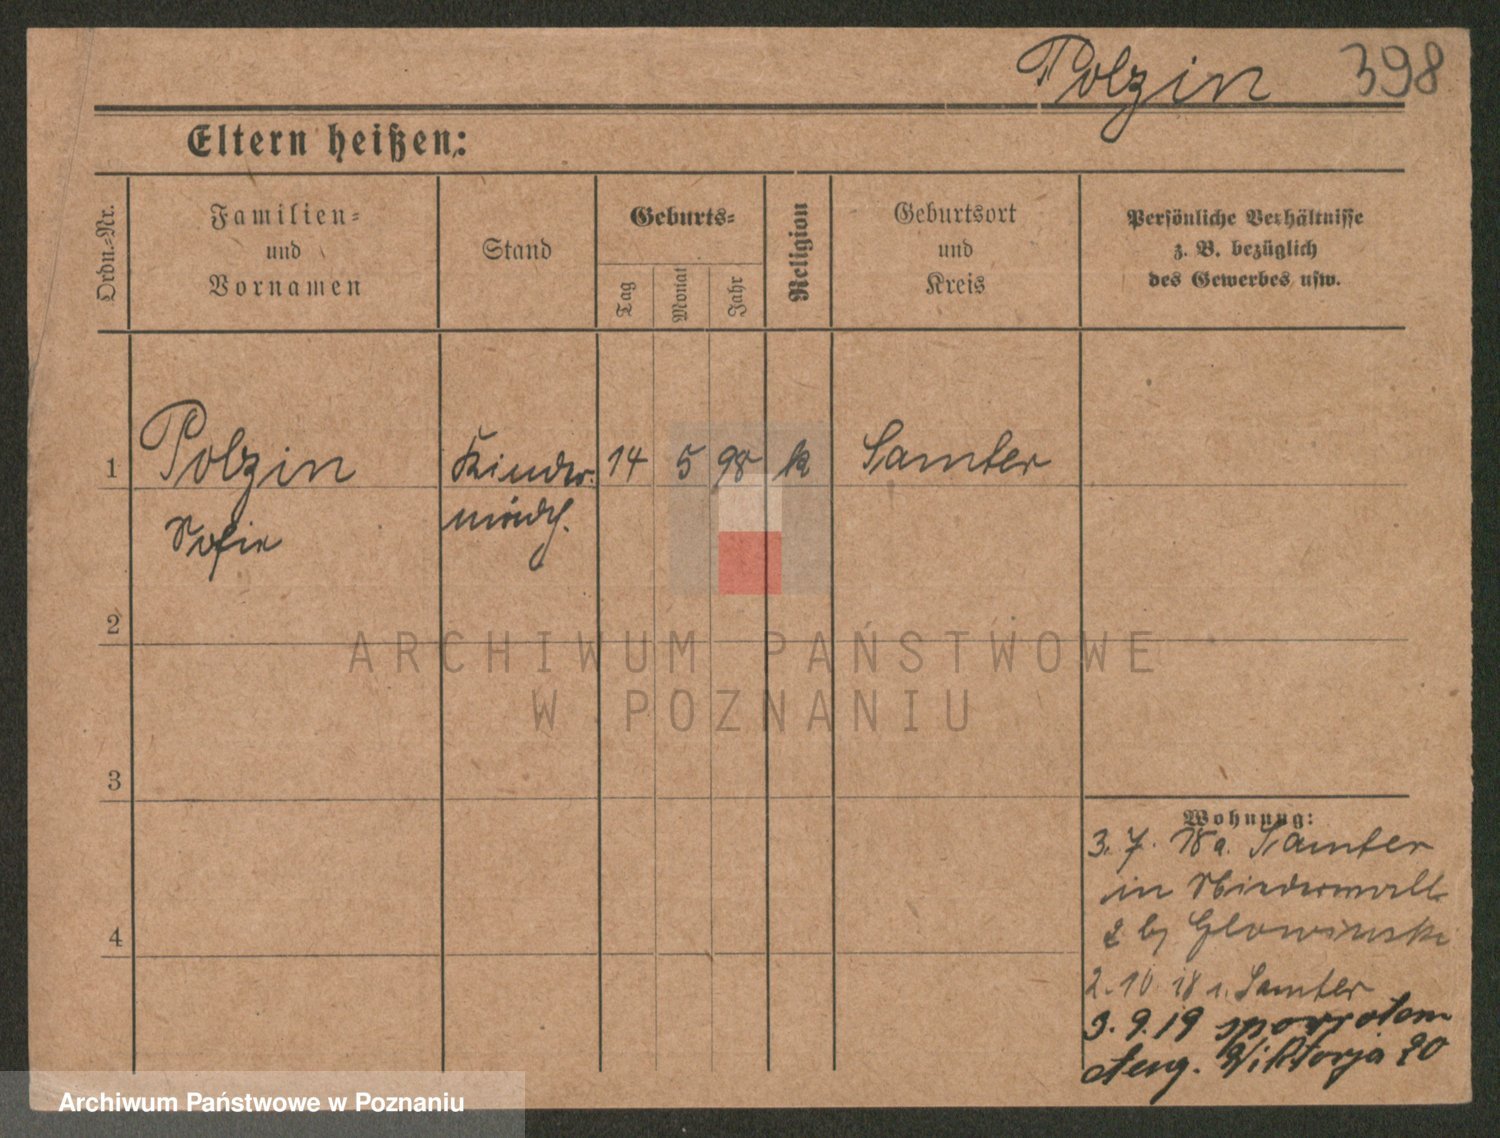 Polzin 398
Eltern heißen:
Ordn.-Nr.
Familien-
und
Vornamen
Stand
Geburts-
Tag
Monat
Jahr
Religion
Geburtsort
und
Kreis
Persönliche Verhältnisse
z. B. bezüglich
des Gewerbes usw.
1
Polzin
Sofie
Kinder-
mädch.
14 5 98 k Samter
2
3
4
Wohnung:
3. 7. 18 a. Samter
in Niederwall
2 by Glowinski
2. 10 18 n. Samter
3. 9. 19 spowrotem
Wiktorja 20
ARCHIWUM PAŃSTWOWE
W POZNANIU
Archiwum Państwowe w Poznaniu